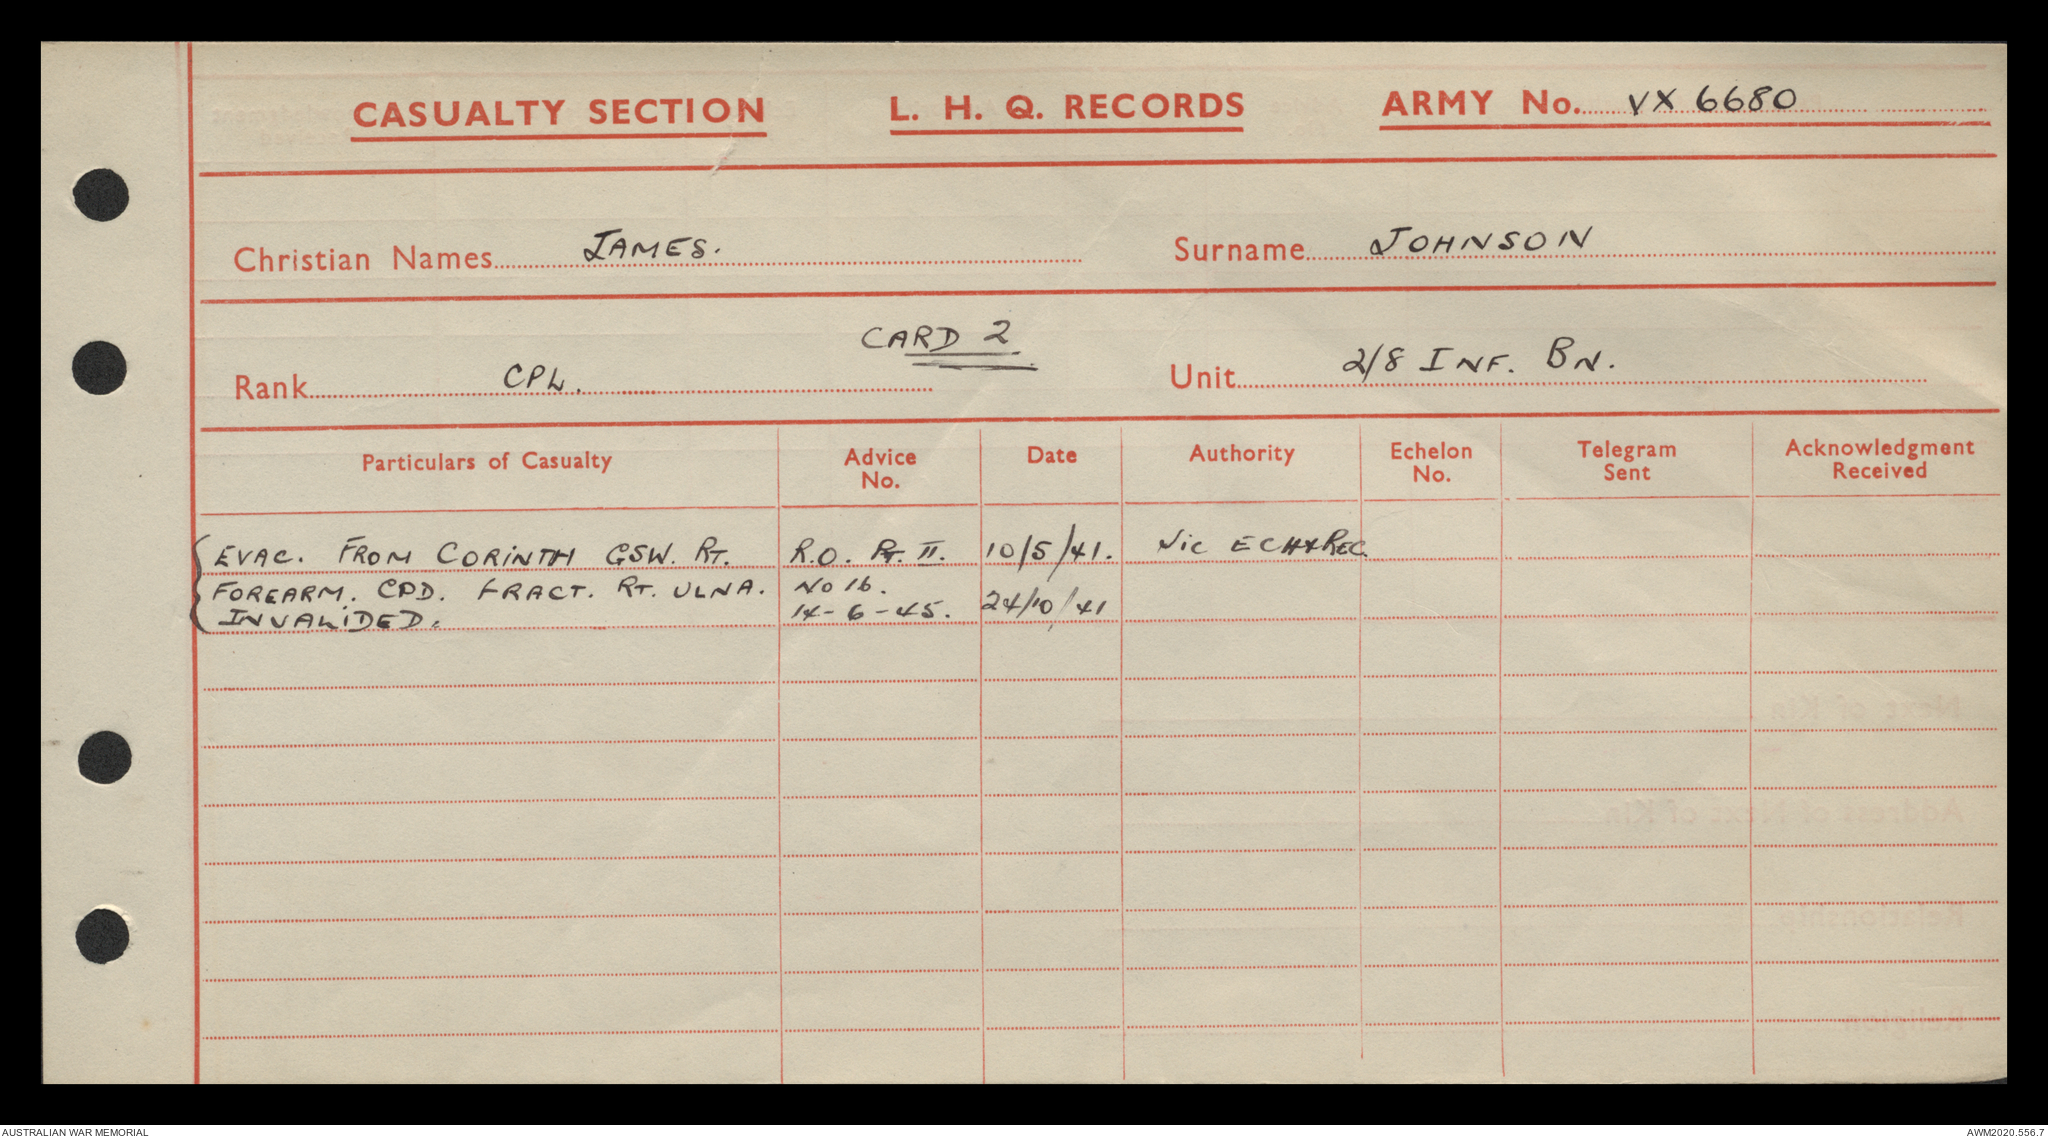 CASUALTY SECTION L. H. Q. RECORDS ARMY No. VX 6680
Christian Names JAMES. Surname JOHNSON
CARD 2
Rank CPL. Unit 2/8 INF. BN.
Particulars of Casualty Advice No. Date Authority Echelon No. Telegram Sent Acknowledgment Received
EVAC. FROM CORINTH GSW. RT. R.O. PT. II. 10/5/41. Vic ECH & REC.
FOREARM. CPD. FRACT. RT. ULNA. No 16.
INVALIDED. 14-6-45. 24/10/41
Next of Kin
Address of Next of Kin
Relationship
Religion
AUSTRALIAN WAR MEMORIAL AWM2020.556.7